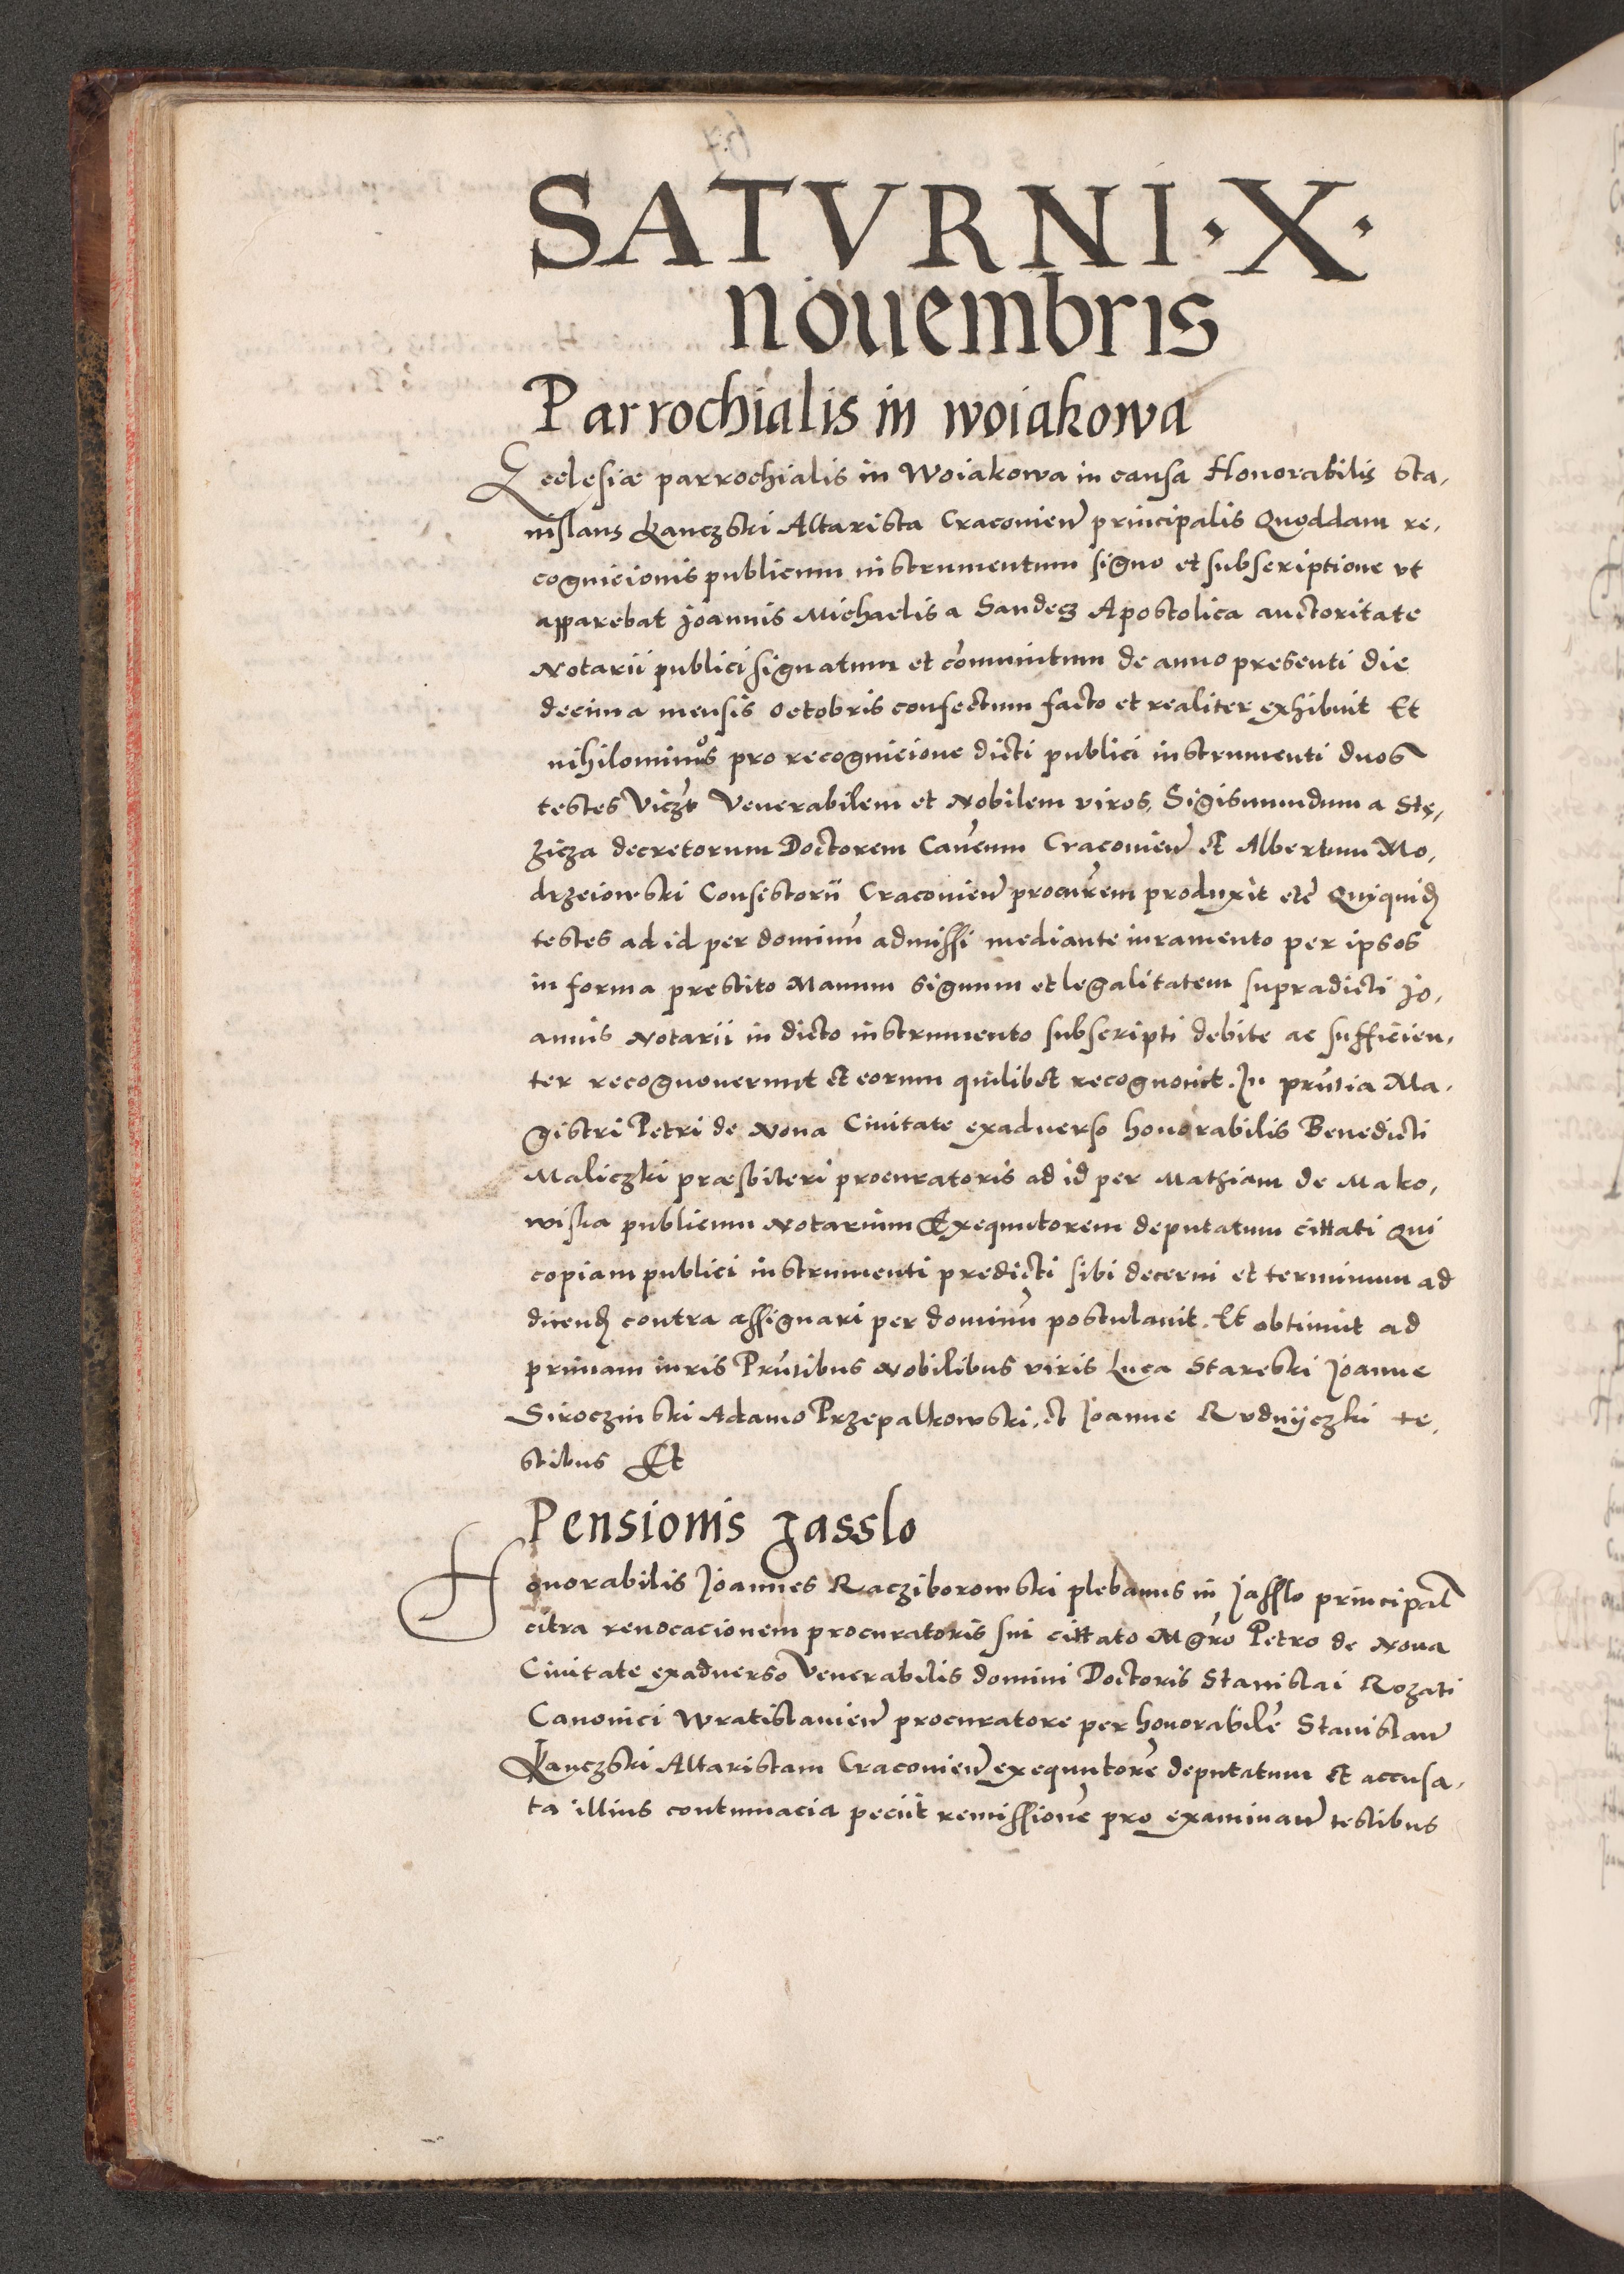 SATVRNI · X ·
nouembris
Parrochialis in woiakowa
Ecclesiæ parrochialis in Woiakowa in causa Honorabilis Sta,
nislaus Lanczski Altarista Cracovień principalis Quoddam re,
cognicionis publicum instrumentum signo et subscriptione vt
apparebat Joannis Michaelis a Sandecz Apostolica auctoritate
Notarii publici signatum et cōmunitum de anno presenti die
decima mensis octobris confectum facto et realiter exhibuit Et
nihilominus pro recognicione dicti publici instrumenti duos
testes Viczt Venerabilem et Nobilem viros, Sigismundum a Stę,
zicza decretorum Doctorem Cancum Cracovień et Albertum Mo,
drzeiowski Consistorii Cracovień procurem produxit etc Quiquid
testes ad id per dominū admissi mediante iuramento per ipsos
in forma prestito Manum signum et legalitatem supradicti Jo,
annis Notarii in dicto instrumento subscripti debite ac sufficien,
ter recognouerunt et eorum quilibet recognouit. In pn̄tia Ma,
gistri Petri de Noua Ciuitate exaduerso honorabilis Benedicti
Maliczki præsbiteri procuratoris ad id per Mathiam de Mako,
wiska publicum Notarium Exequutorem deputatum cittati Qui
copiam publici instrumenti predicti sibi decerni et terminum ad
dicend contra assignari per dominū postulauit. Et obtinuit ad
primam iuris Pn̄tibus Nobilibus viris Luca Starebski Joanne
Siroczinski Adamo Przepalkowski. et Joanne Rudnijczki te,
stibus Et
Pensionis Jasslo
Honorabilis Joannes Racziborowski plebanus in Jasslo principal
citra reuocacionem procuratoris sui cittato Mgr̄o Petro de Noua
Ciuitate exaduerso Venerabilis domini Doctoris Stanislai Rozati
Canonici Wratislauień procuratore per honorabilē Stanislaū
Lanczski Altaristam Cracovień exequutorē deputatum et accusa,
ta illius contumacia peciit remissionē pro examinań testibus